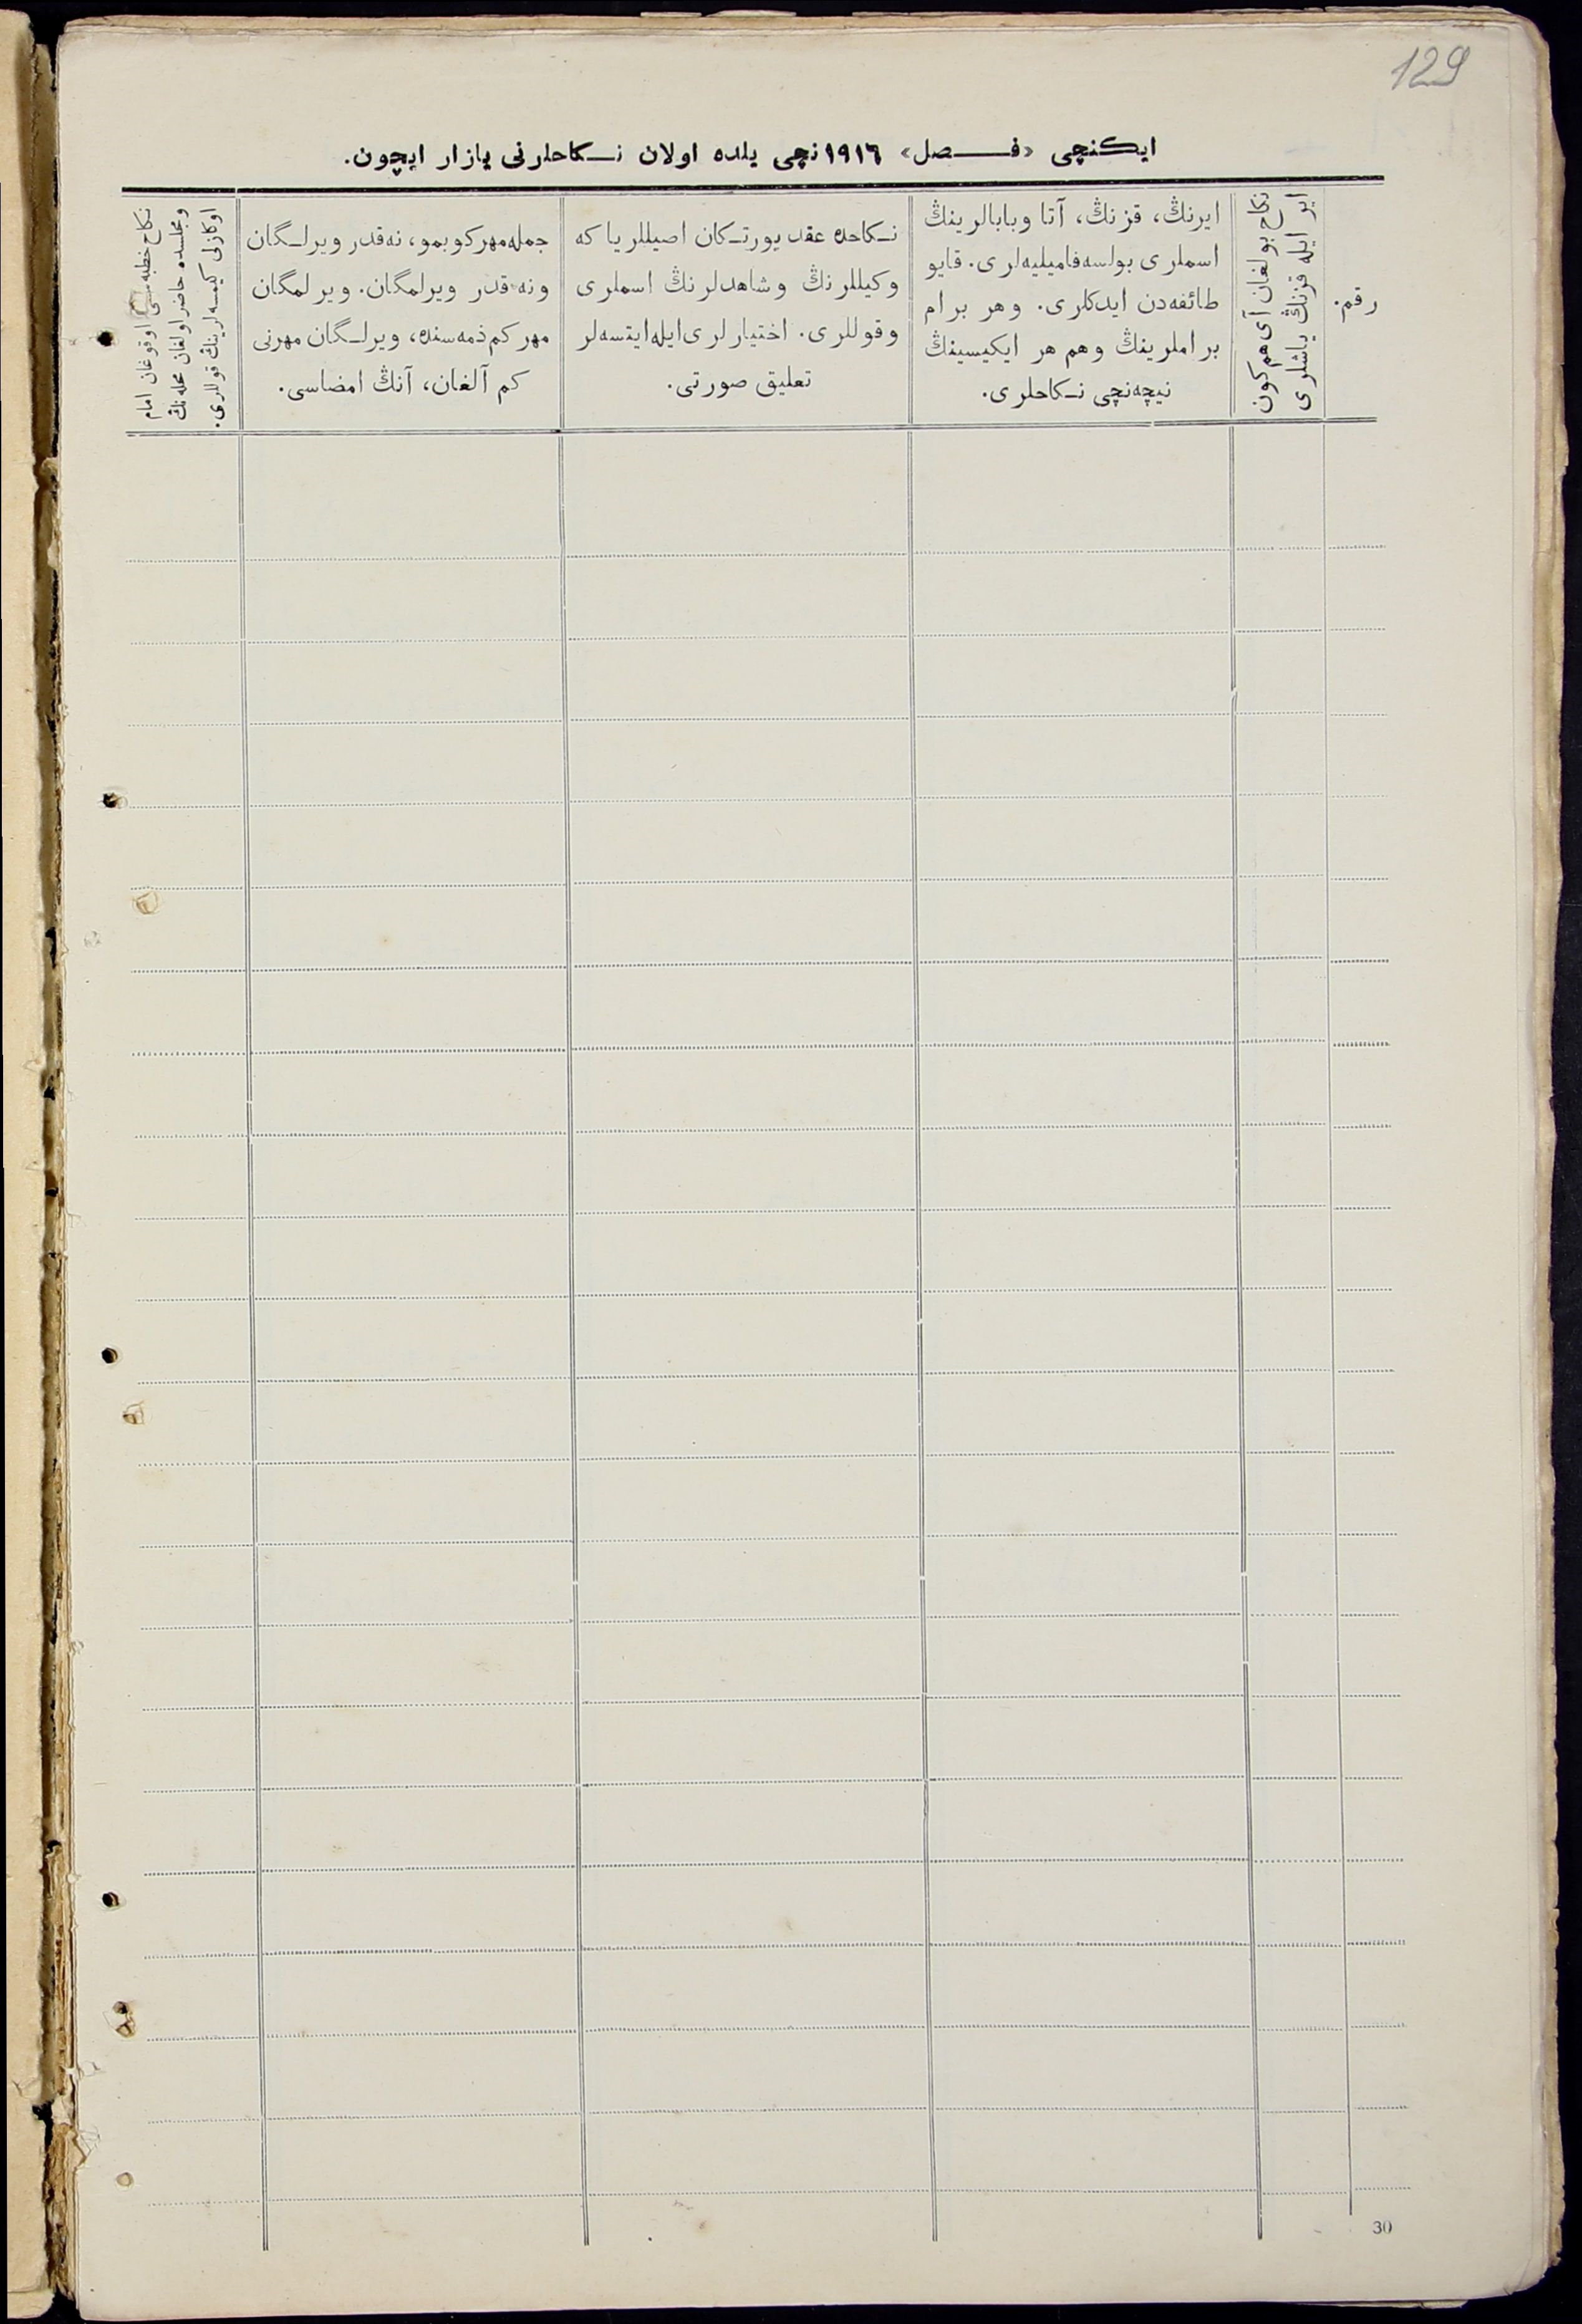 129
ایکنچی «فصل» ۱۹۱٦ نچی یلده اولان نکاحلرنی یازار ایچون.
رقم.
نکاح بولغان آی هم کون
ایر ایله قزنڭ یاشلری
ایرنڭ، قزنڭ، آتا وبابالرینڭ
اسملری بولسه فامیلیه‌لری. قایو
طائفه‌دن ایدکلری. وهر برام
براملرینڭ وهم هر ایکیسینڭ
نیچه‌نچی نکاحلری.
نکاحده عقد یورتکان اصیللر یا که
وکیللرنڭ وشاهدلرنڭ اسملری
وقوللری. اختیارلری ایله ایتسه‌لر
تعلیق صورتی.
جمله مهر کوبمو، نه‌قدر ویرلگان
ونه‌قدر ویرلمگان. ویرلمگان
مهر کم ذمه‌سنده، ویرلگان مهرنی
کم آلغان، آنڭ امضاسی.
نکاح خطبه‌سی اوقوغان امام
ومجلسده حاضر اولغان محله‌نڭ
اوکازلی کیمسه‌لرینڭ قوللری.
30